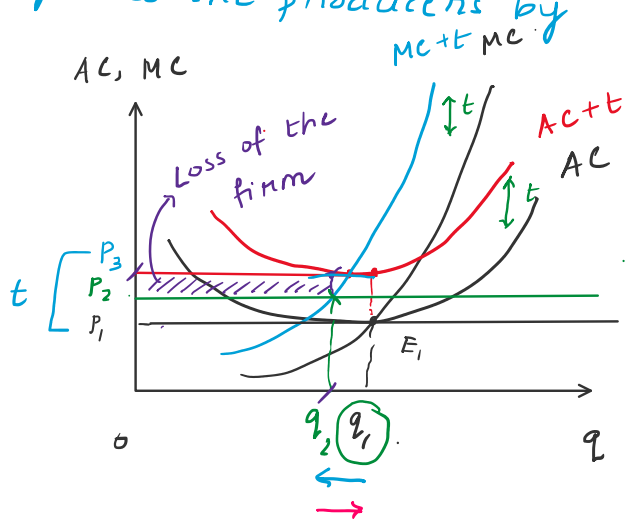 the producers by
MC+t MC
AC, MC
t
AC+t
AC
Loss of the
firm
t
P3
t
P2
P1
E1
0
q2 q1
q